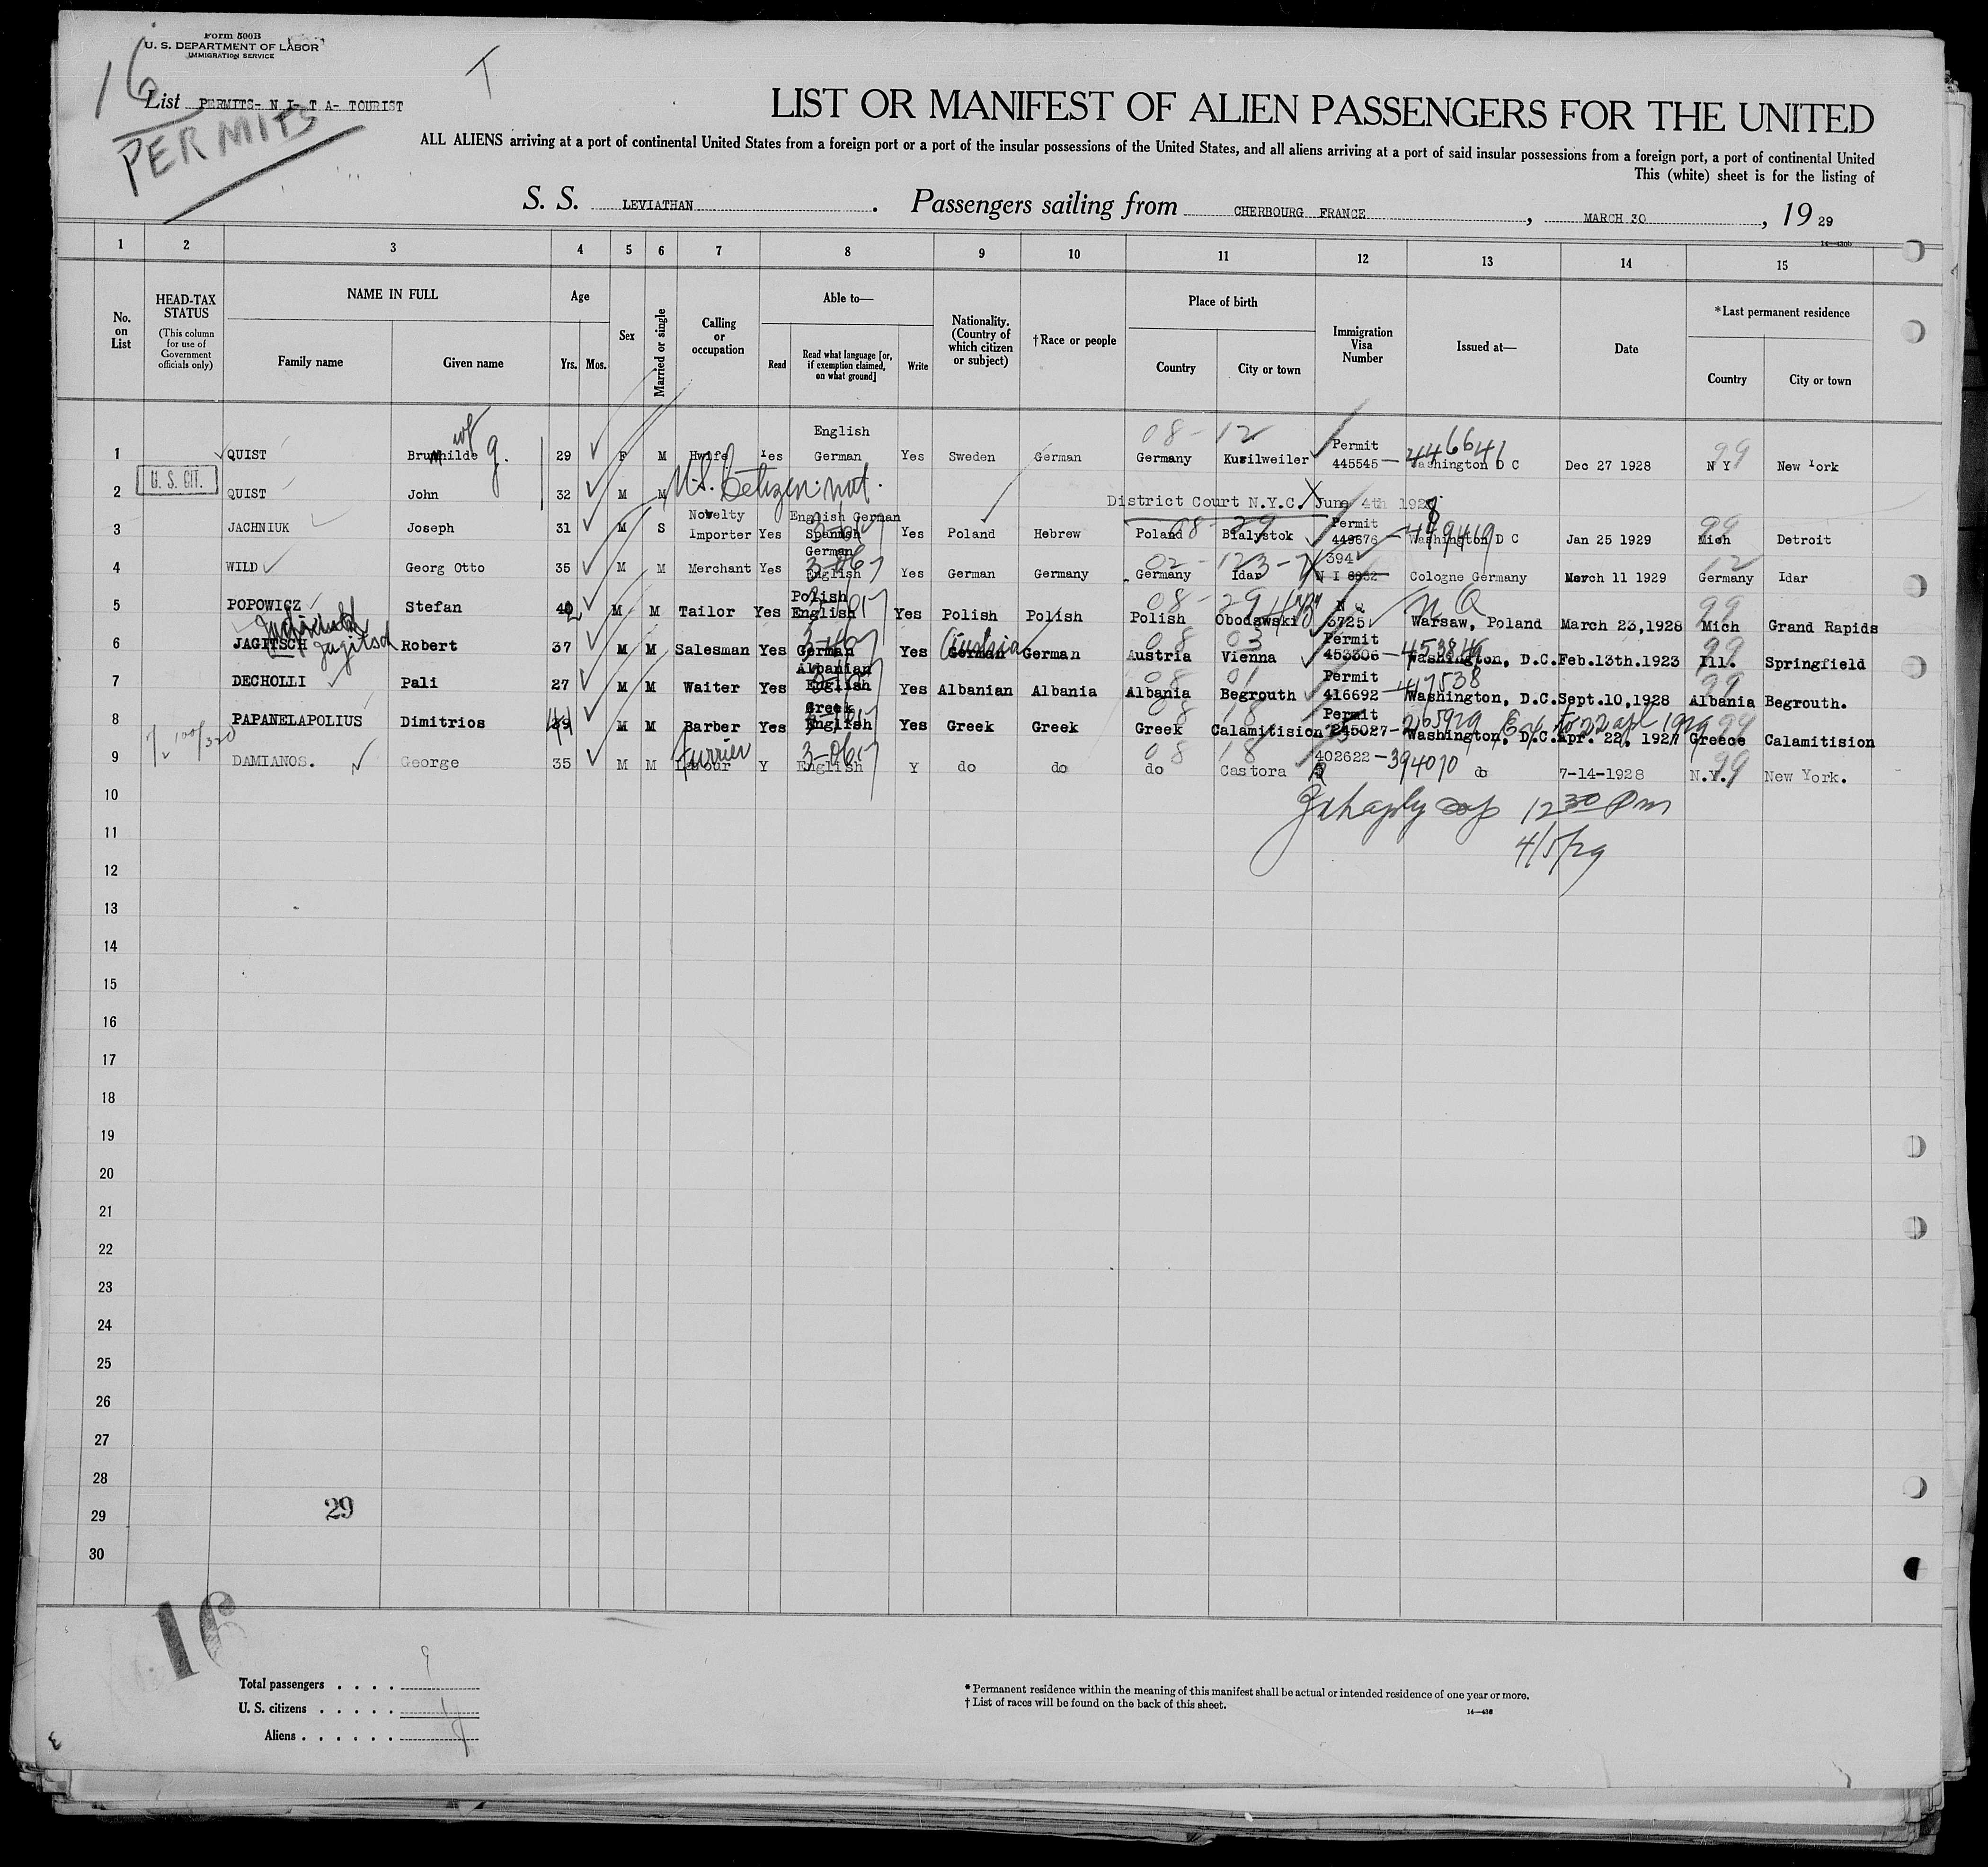 Form 500B
U. S. DEPARTMENT OF LABOR
IMMIGRATION SERVICE
16
T
List PERMITS- N I- T A- TOURIST
PERMITS
LIST OR MANIFEST OF ALIEN PASSENGERS FOR THE UNITED
ALL ALIENS arriving at a port of continental United States from a foreign port or a port of the insular possessions of the United States, and all aliens arriving at a port of said insular possessions from a foreign port, a port of continental United
This (white) sheet is for the listing of
S. S. LEVIATHAN. Passengers sailing from CHERBOURG FRANCE, MARCH 30, 19 29
1 2 3 4 5 6 7 8 9 10 11 12 13 14 15
No. on List
HEAD-TAX STATUS (This column for use of Government officials only)
NAME IN FULL
Family name Given name
Age Yrs. Mos.
Sex
Married or single
Calling or occupation
Able to—
Read Read what language [or, if exemption claimed, on what ground] Write
Nationality. (Country of which citizen or subject)
†Race or people
Place of birth
Country City or town
Immigration Visa Number
Issued at—
Date
*Last permanent residence
Country City or town
wf g. 08 - 12 446641 99
1 QUIST Brunhilde 29 F M Hwife Yes English German Yes Sweden German Germany Kusilweiler Permit 445545 Washington D C Dec 27 1928 N Y New York
U. S. CIT.
2 QUIST John 32 M M U.S. Citizen nat. District Court N.Y.C. June 4th 1928
3 JACHNIUK Joseph 31 M S Novelty Importer Yes English German Spanish Yes Poland Hebrew Poland Bialystok Permit 449676 - 449419 Washington D C Jan 25 1929 Mich Detroit
08 - 29 99
4 WILD Georg Otto 35 M M Merchant Yes German English Yes German Germany Germany Idar 394 N I 8952 Cologne Germany March 11 1929 Germany Idar
02 - 12 12
5 POPOWICZ Stefan 40 M M Tailor Yes Polish English Yes Polish Polish Polish Obodowski N Q 3725 Warsaw, Poland March 23,1928 Mich Grand Rapids
08 - 29 N Q 99
6 JAGITSCH Jagitsch Robert 37 M M Salesman Yes German Yes German Austria German Austria Vienna Permit 453306 Washington, D.C. Feb.13th.1923 Ill. Springfield
08 03 99
7 DECHOLLI Pali 27 M M Waiter Yes Albanian English Yes Albanian Albania Albania Begrouth Permit 416692 - 417538 Washington, D.C. Sept.10,1928 Albania Begrouth.
08 01 99
8 PAPANELAPOLIUS Dimitrios 39 44 M M Barber Yes Greek English Yes Greek Greek Greek Calamitision Permit 245027 - 265929 Washington, D.C. Apr. 22, 1927 Greece Calamitision
08 18 Ext to 22 apl 1929 99
9 DAMIANOS. George 35 M M Labour Furrier Y English 3-06 Y do do do Castora 402622 - 394070 do 7-14-1928 N.Y. New York.
08 18 99
10
12 30 Pm
11
4/5/29
12
13
14
15
16
17
18
19
20
21
22
23
24
25
26
27
28
29
29
30
16
Total passengers . . . . 9
U. S. citizens . . . . . 1
Aliens . . . . . .
* Permanent residence within the meaning of this manifest shall be actual or intended residence of one year or more.
† List of races will be found on the back of this sheet.
14—438
3